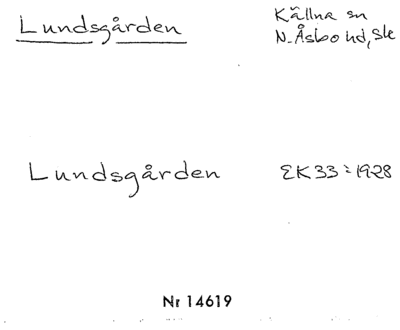 Lundsgården
Källna sn
N. Åsbo hd, Sk
Lundsgården
EK33 : 1928
Nr 14619